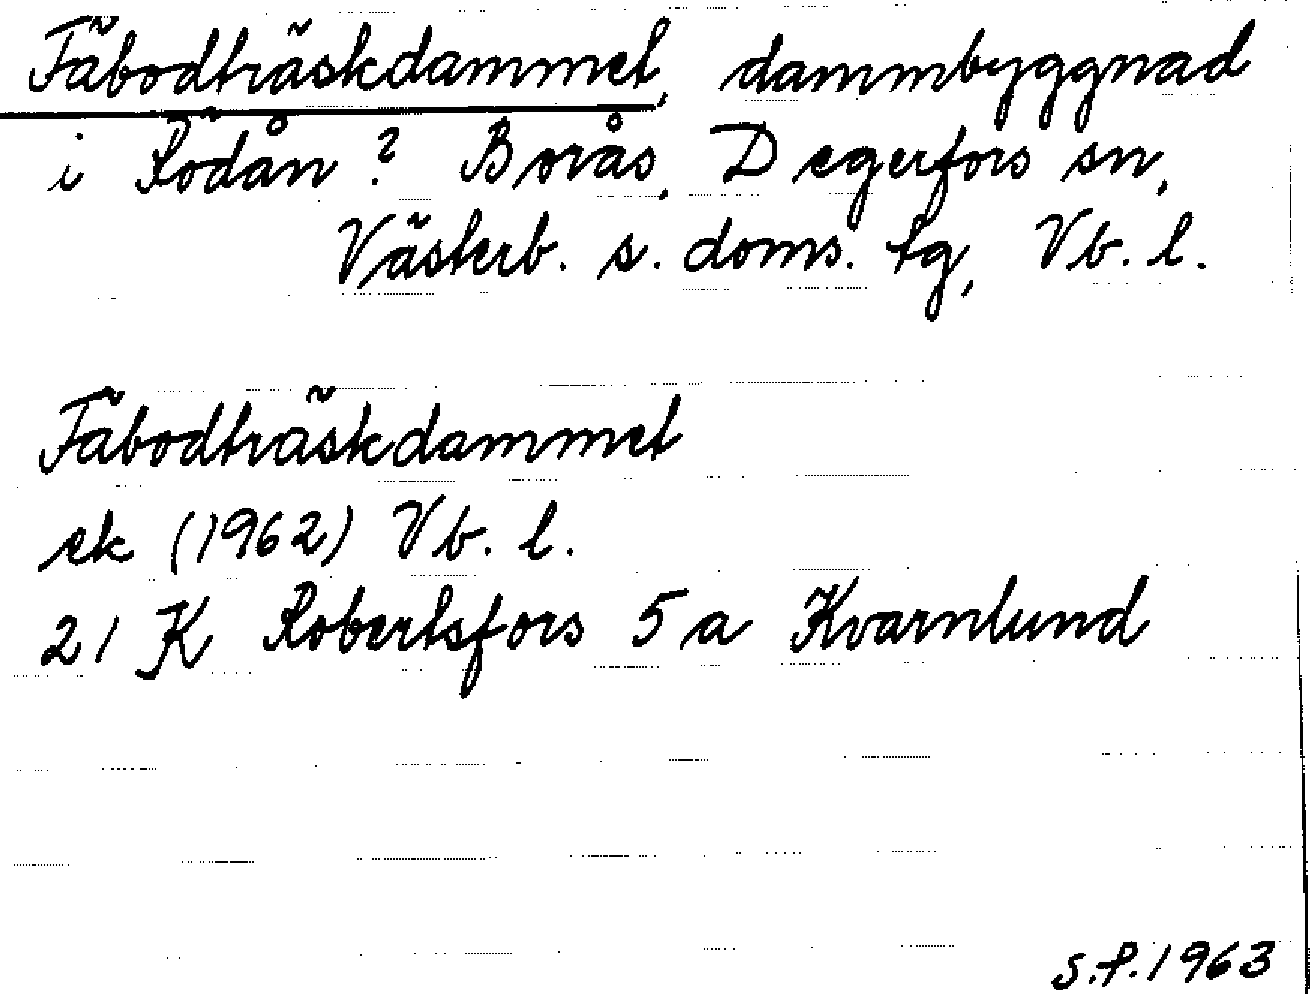 Fäbodträskdammet, dammbyggnad
i Rödån? Borås, Degerfors sn,
Västerb. s. doms. tg, Vb. l.
Fäbodträskdammet
ek (1962) Vb. l.
21 K Robertsfors 5 a Kvarnlund
S.P. 1963